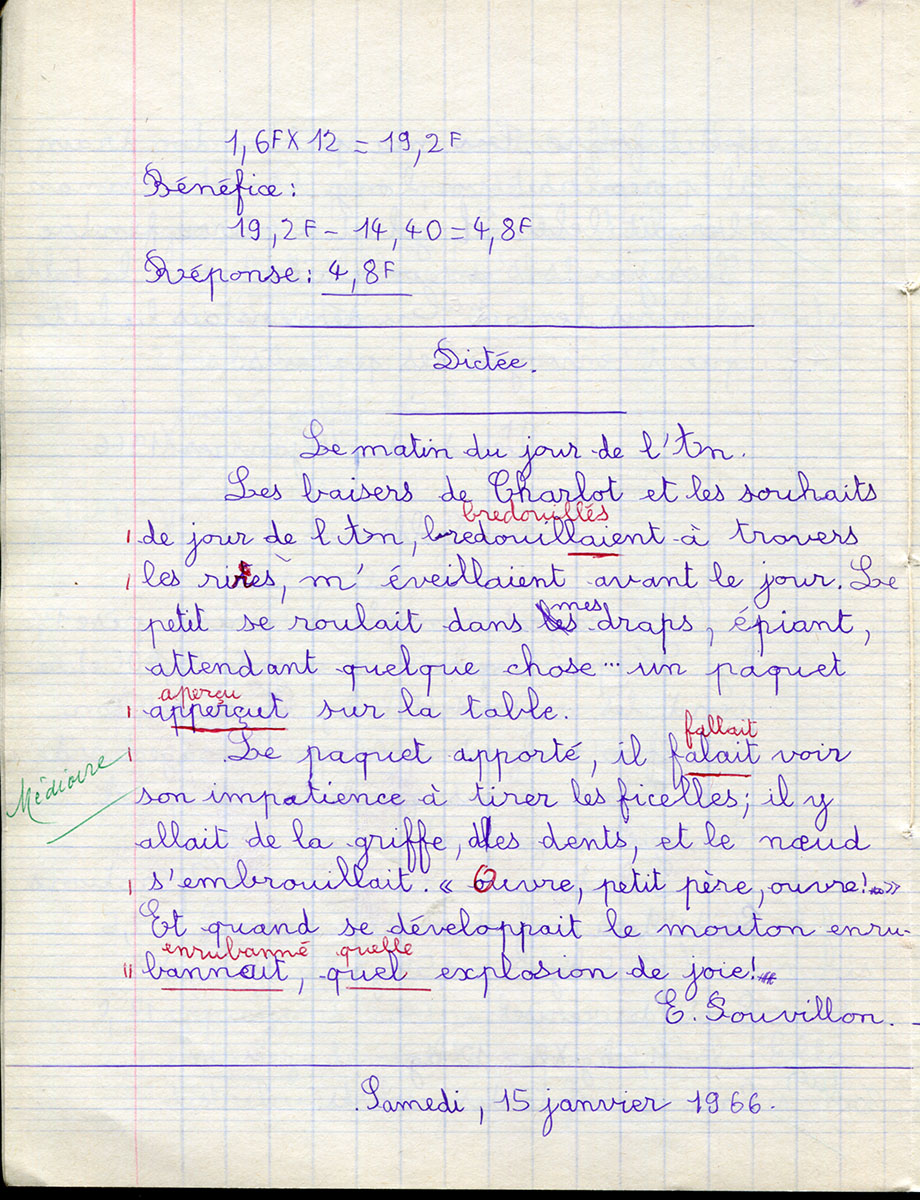 1,6F X 12 = 19,2F
Bénéfice :
19,2F - 14,40 = 4,8F
Réponse : 4,8F
Dictée.
Le matin du jour de l'An.
Les baisers de Charlot et les souhaits
bredouillés
de jour de l'An, bredouillaient à travers
les rires, m'éveillaient avant le jour. Le
mes
petit se roulait dans draps, épiant,
attendant quelque chose... un paquet
aperçu
apperçut sur la table.
fallait
Le paquet apporté, il falait voir
Médiocre
son impatience à tirer les ficelles ; il y
allait de la griffe, des dents, et le nœud
s'embrouillait. « Ouvre, petit père, ouvre ! »
Et quand se développait le mouton enru-
enrubanné quelle
bannait, quel explosion de joie !
E. Pouvillon.
Samedi, 15 janvier 1966.